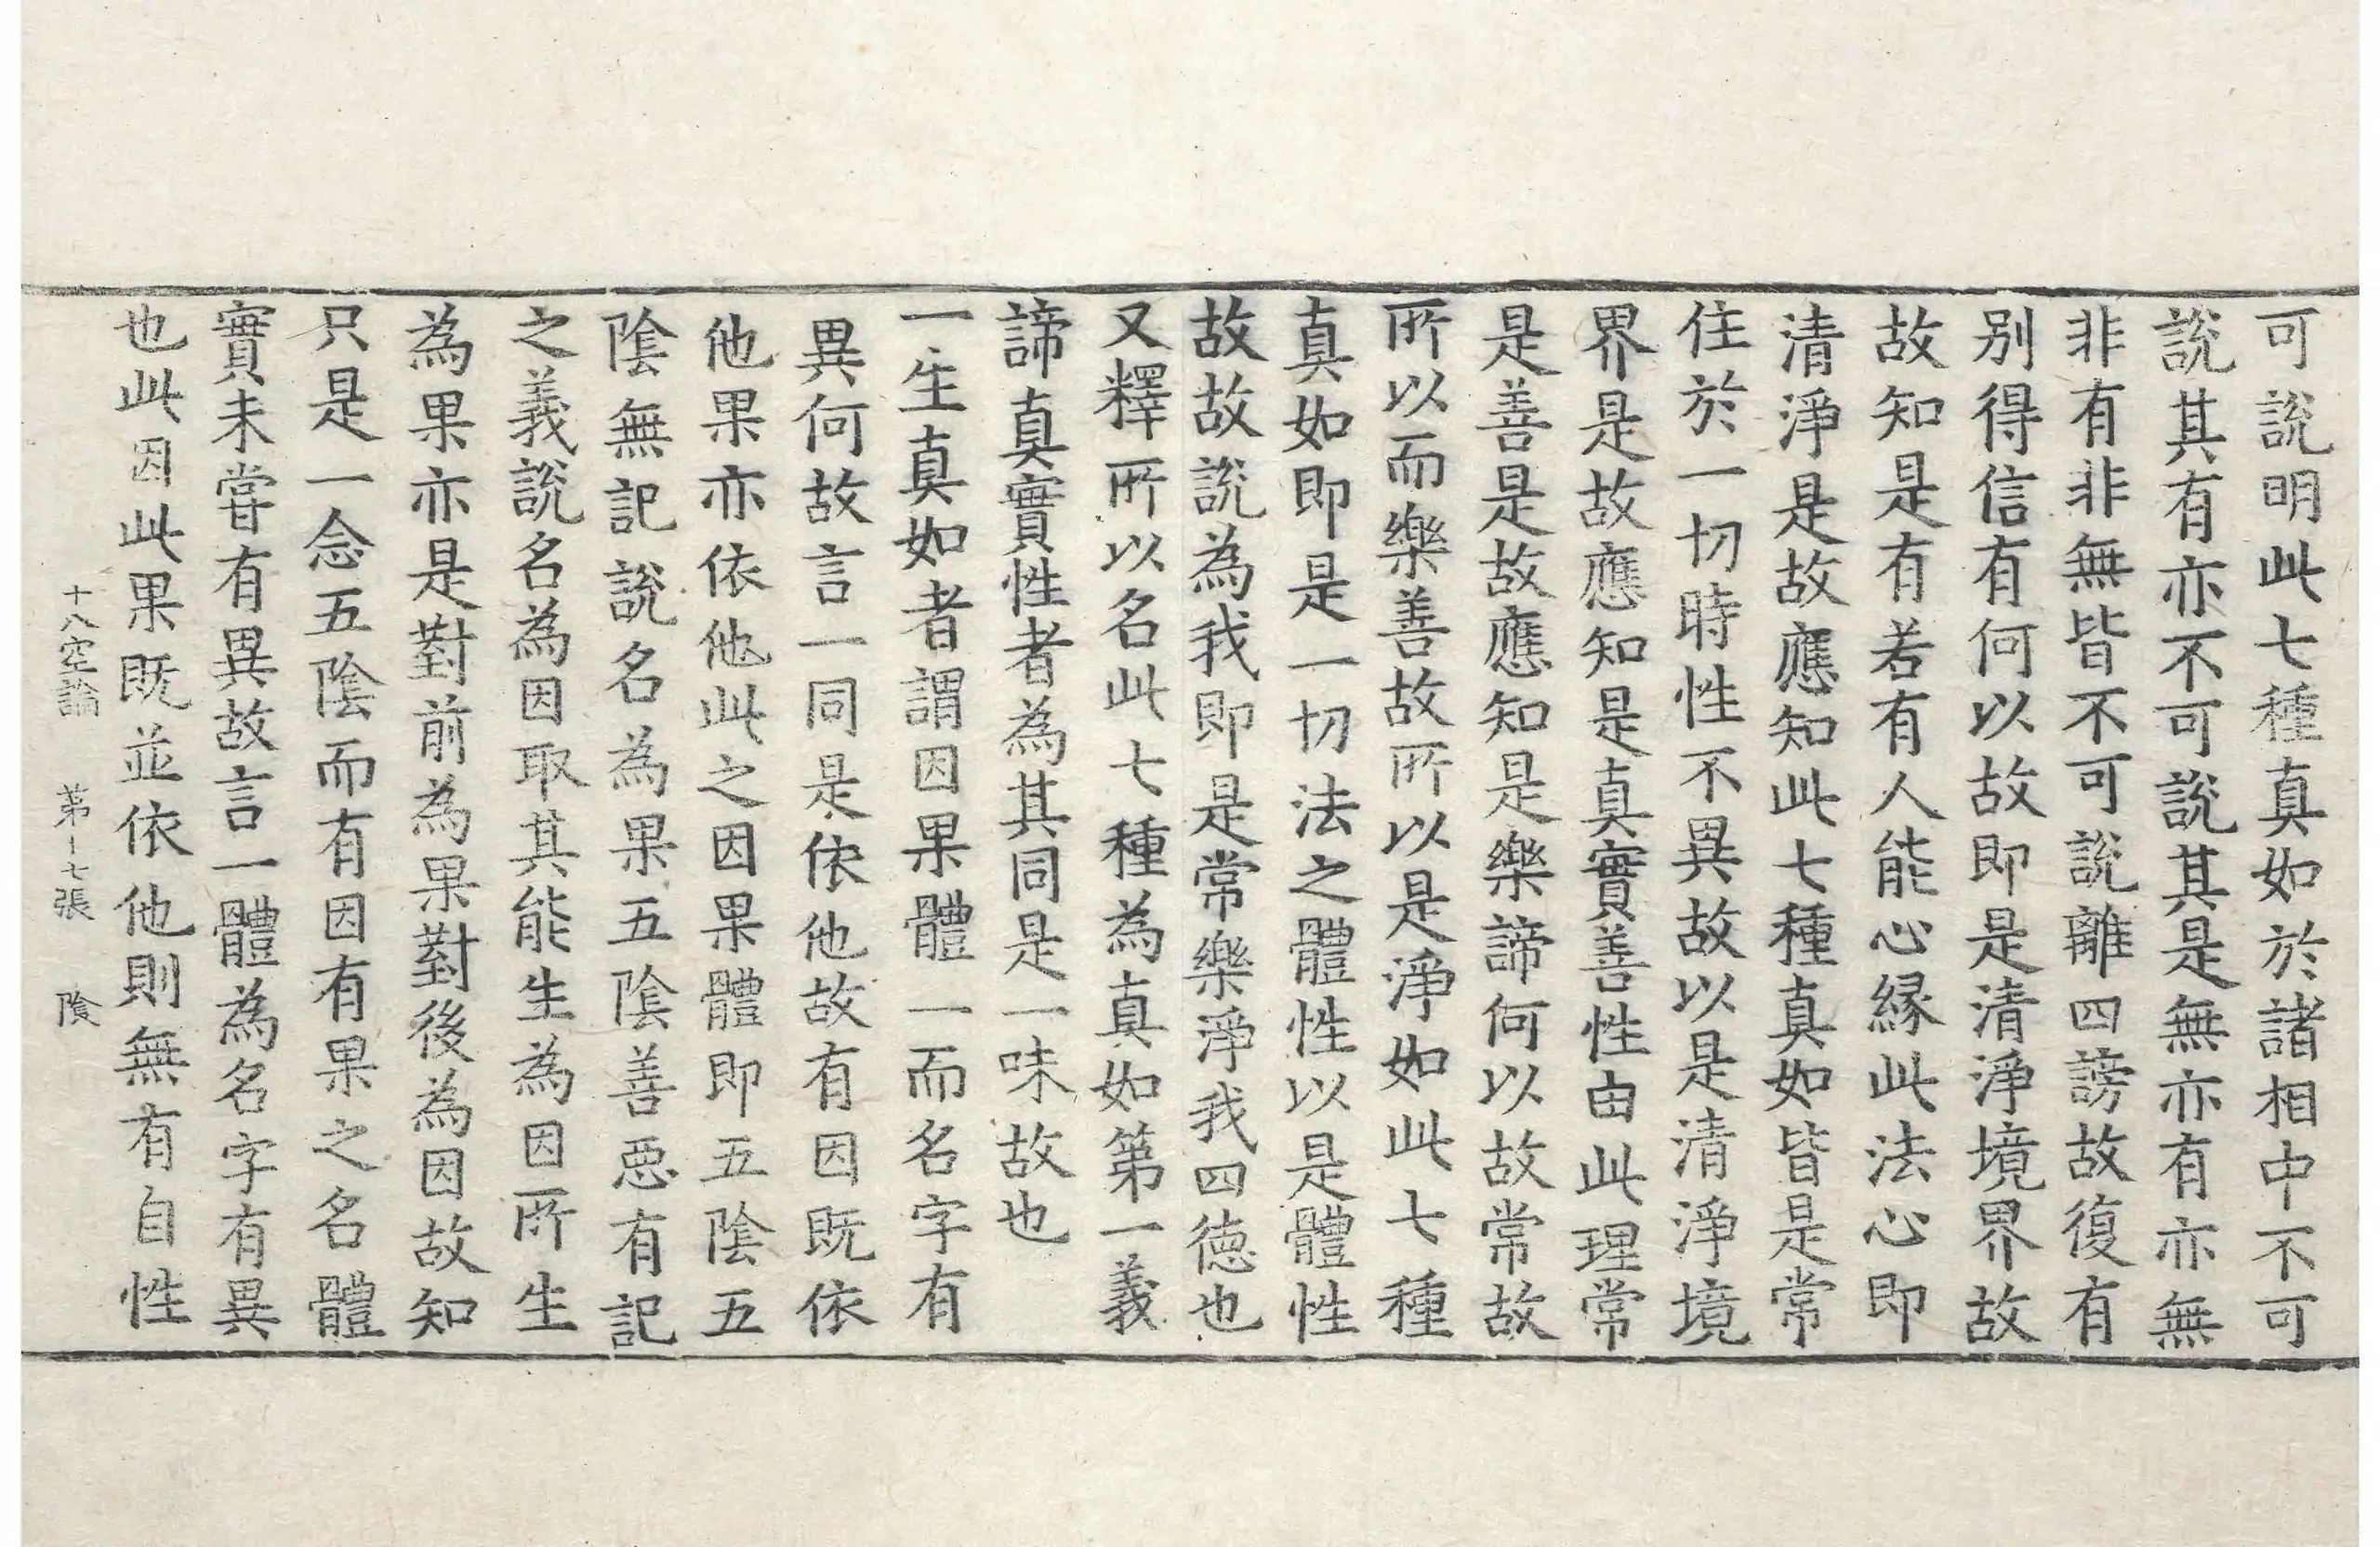 可說明此七種真如於諸相中不可
說其有亦不可說其是無亦有亦無
非有非無皆不可說離四謗故復有
别得信有何以故即是清淨境界故
故知是有若有人能心緣此法心即
清淨是故應知此七種真如皆是常
住於一切時性不異故以是清淨境
界是故應知是真實善性由此理常
是善是故應知是樂諦何以故常故
所以而樂善故所以是淨如此七種
真如即是一切法之體性以是體性
故故說為我即是常樂淨我四德也
又釋所以名此七種為真如第一義
諦真實性者為其同是一味故也
一生真如者謂因果體一而名字有
異何故言一同是依他故有因既依
他果亦依他此之因果體即五陰五
陰無記說名為果五陰善惡有記
之義說名為因取其能生為因所生
為果亦是對前為果對後為因故知
只是一念五陰而有因有果之名體
實未嘗有異故言一體為名字有異
也此因此果既並依他則無有自性
十八空論 第十七張 陰